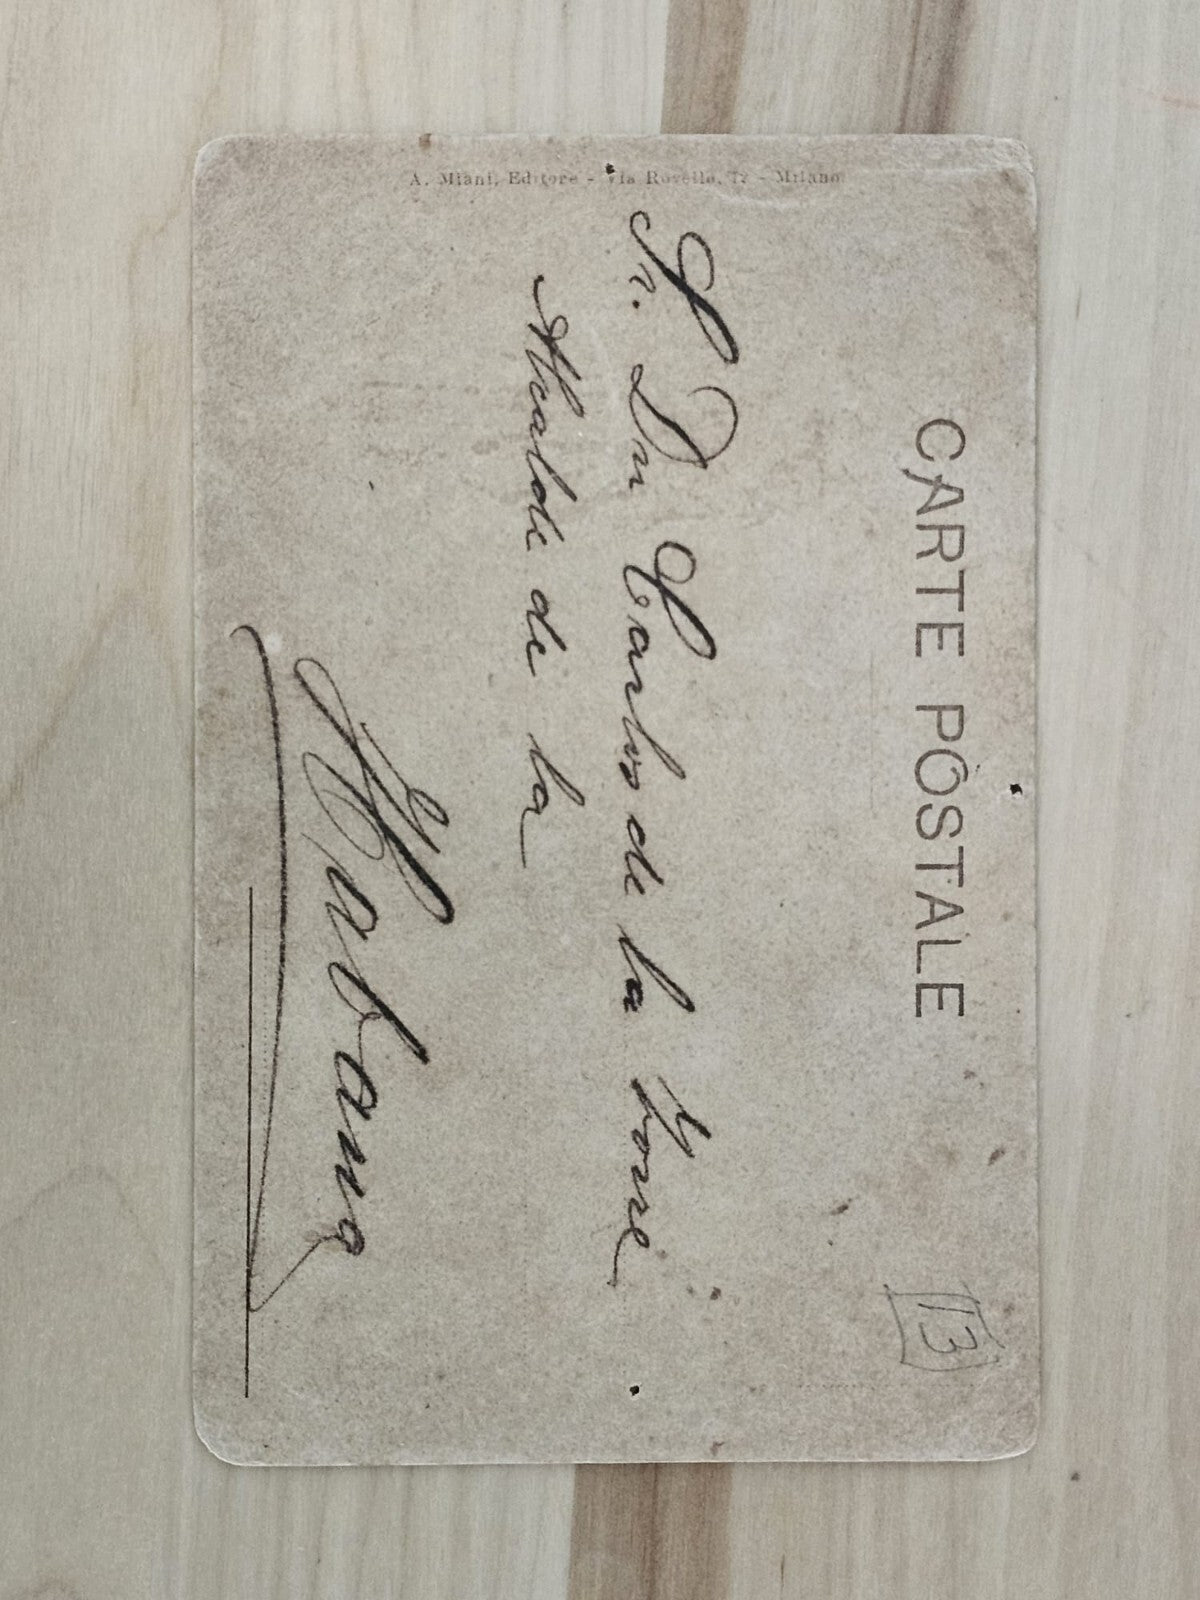 CARTE POSTALE
13
Sr. Dn Carlos de la Torre
Alcalde de la
Habana
A. Miani, Editore - Via Rovello, 12 - Milano